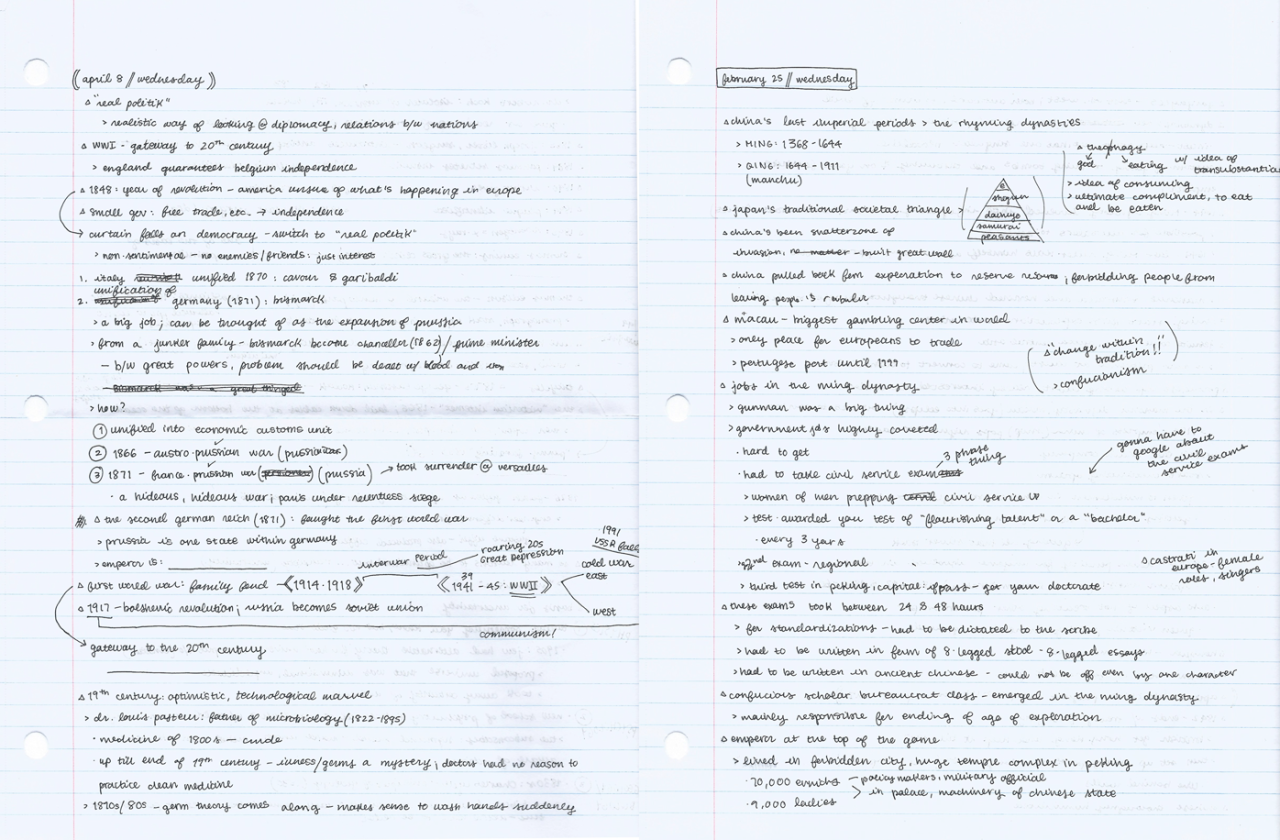 april 8 // wednesday
Δ "real politik"
> realistic way of looking @ diplomacy, relations b/w nations
Δ WWI - gateway to 20th century
> england guarantees belgium independence
Δ 1848: year of revolution - america unsure of what's happening in europe
Δ small gov: free trade, etc. → independence
curtain falls on democracy - switch to "real politik"
> non-sentimental - no enemies/friends: just interest
1. italy unified 1870: cavour & garibaldi
unification of
2. germany (1871): bismarck
> a big job; can be thought of as the expansion of prussia
> from a junker family - bismarck become chancellor (1862) / prime minister
- b/w great powers, problem should be dealt w/ blood and iron
> how?
① unified into economic customs unit
② 1866 - austro-prussian war (prussia)
③ 1871 - franco-prussian war (prussia) → took surrender @ versailles
· a hideous, hideous war; paris under relentless siege
Δ the second german reich (1871): fought the first world war
> prussia is one state within germany
> emperor is:
interwar period
roaring 20s
Great Depression
1991
USSR falls
cold war
east
west
Δ first world war: family feud - 《1914-1918》 《1941 - 45: WWII》
39
Δ 1917 - bolshevic revolution; russia becomes soviet union
communism/
gateway to the 20th century
Δ 19th century: optimistic, technological marvel
> dr. louis pasteur: father of microbiology (1822-1895)
· medicine of 1800s - crude
· up till end of 19th century - illness/germs a mystery; doctors had no reason to
practice clean medicine
> 1870s/80s - germ theory comes along - makes sense to wash hands suddenly
february 25 // wednesday
Δ china's last imperial periods > the rhyming dynasties
> MING: 1368-1644
> QING: 1644-1911
(manchu)
Δ theophagy
god eating w/ idea of
transubstantia
> idea of consuming
> ultimate compliment, to eat
and be eaten
Δ japan's traditional societal triangle >
e
shogun
daimyo
samurai
peasants
Δ china's been shatterzone of
invasion, no matter - built great wall
Δ china pulled back from exploration to reserve, forbidding people from
leaving
Δ macau - biggest gambling center in world
> only peace for europeans to trade
> portugese port until 1999
Δ "change within
tradition!!"
> confucianism
Δ jobs in the ming dynasty
> gunman was a big thing
> government jobs highly coveted
· hard to get
· had to take civil service exam
3 phase
thing
gonna have to
google about
the civil
service exams
> women of men prepping civil service
> test awarded you test of "flourishing talent" or a "bachelor"
· every 3 years
> 2nd exam - regional
> third test in peking, capital: if pass - got your doctorate
Δ castrati in
europe - female
roles, singers
Δ these exams took between 24 & 48 hours
> for standardizations - had to be dictated to the scribe
> had to be written in form of 8-legged stool - 8-legged essays
> had to be written in ancient chinese - could not be off even by one character
Δ confucious scholar bureaucrat class - emerged in the ming dynasty
> mainly responsible for ending of age of exploration
Δ emperor at the top of the game
> lived in forbidden city, huge temple complex in peking
· 70,000 eunuchs - policy makers, military official
· 9,000 ladies
> in palace, machinery of chinese state